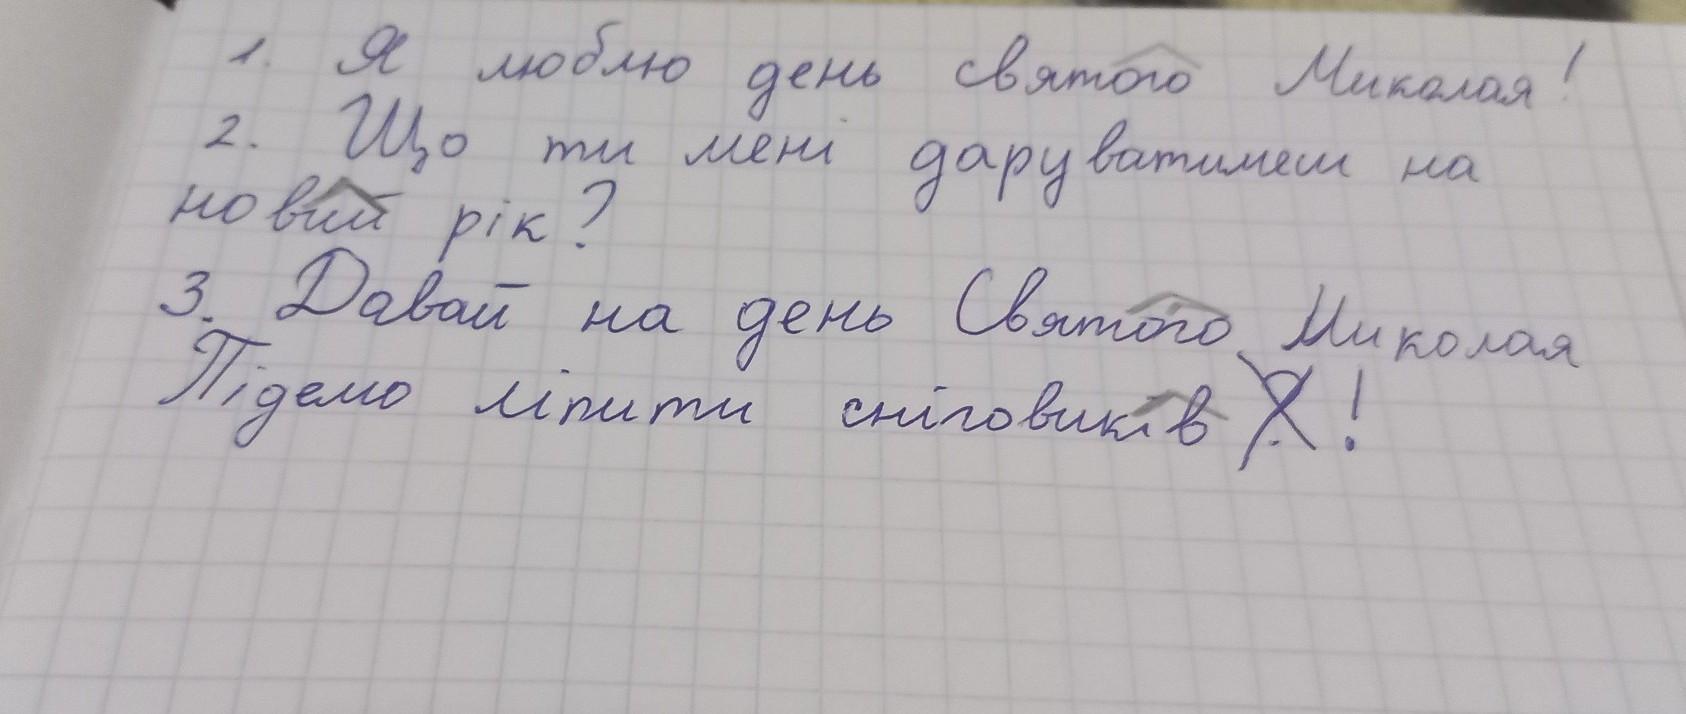 1. Я люблю день святого Миколая!
2. Що ти мені даруватимеш на
новий рік?
3. Давай на день Святого Миколая
Підемо ліпити сніговиків!